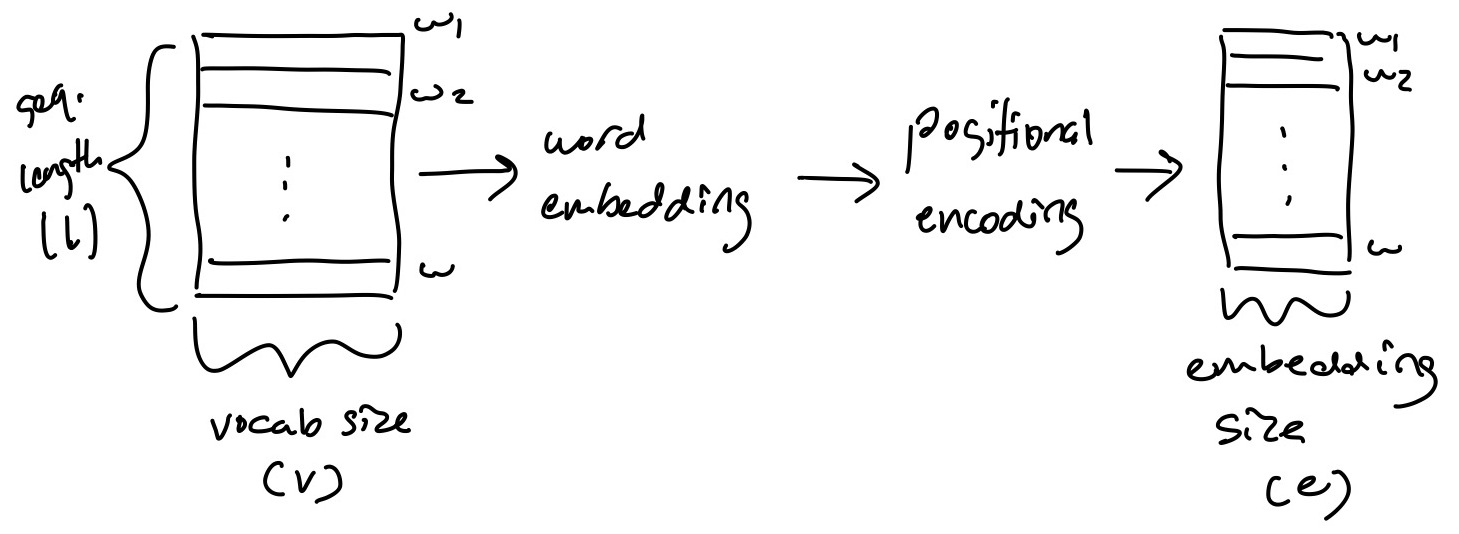 w1
w2
w
seq.
length
(l)
vocab size
(v)
word
embedding
positional
encoding
w1
w2
w
embedding
size
(e)